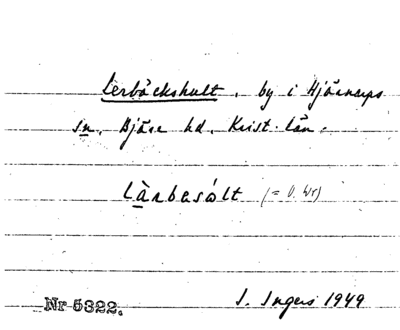 Lerbäckshult, by i Hjärnarps
sn, Bjäre hd, Krist. län.
làrbasólt (= O. Wr)
Nr 5322. I. Ingers 1949